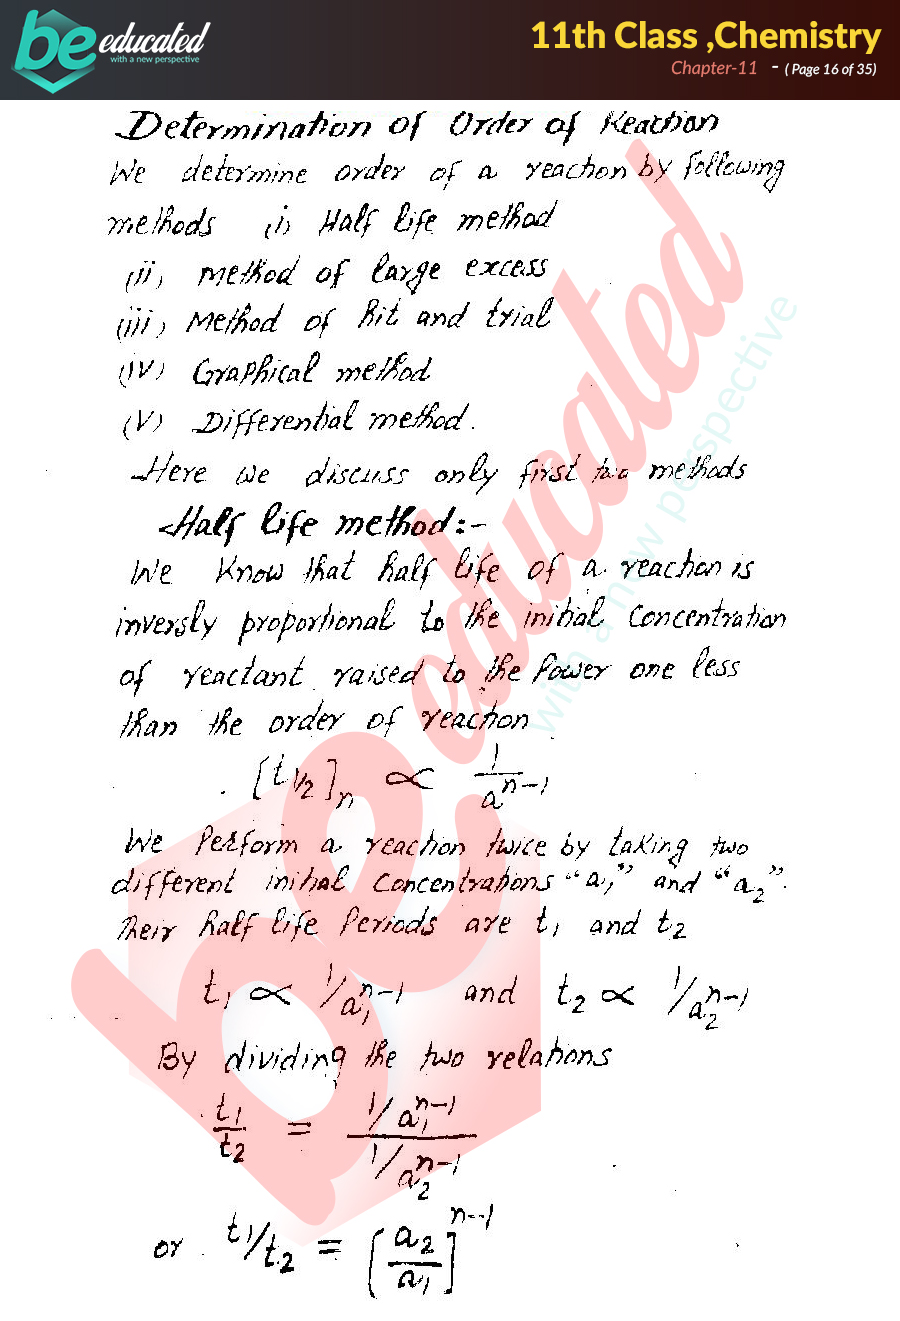 be educated
with a new perspective
11th Class ,Chemistry
Chapter-11 - ( Page 16 of 35)
Determination of Order of Reaction
We determine order of a reaction by following
methods (i) Half life method
(ii) Method of large excess
(iii) Method of hit and trial
(iv) Graphical method
(v) Differential method.
Here we discuss only first two methods
Half life method:-
We Know that half life of a reaction is
inversly proportional to the initial concentration
of reactant raised to the Power one less
than the order of reaction
[t1/2]n ∝ 1/a^n-1
We Perform a reaction twice by taking two
different initial concentrations "a1" and "a2".
Their half life Periods are t1 and t2
t1 ∝ 1/a1^n-1 and t2 ∝ 1/a2^n-1
By dividing the two relations
t1/t2 = (1/a1^n-1)/(1/a2^n-1)
or t1/t2 = [a2/a1]^n-1
be educated
with a new perspective